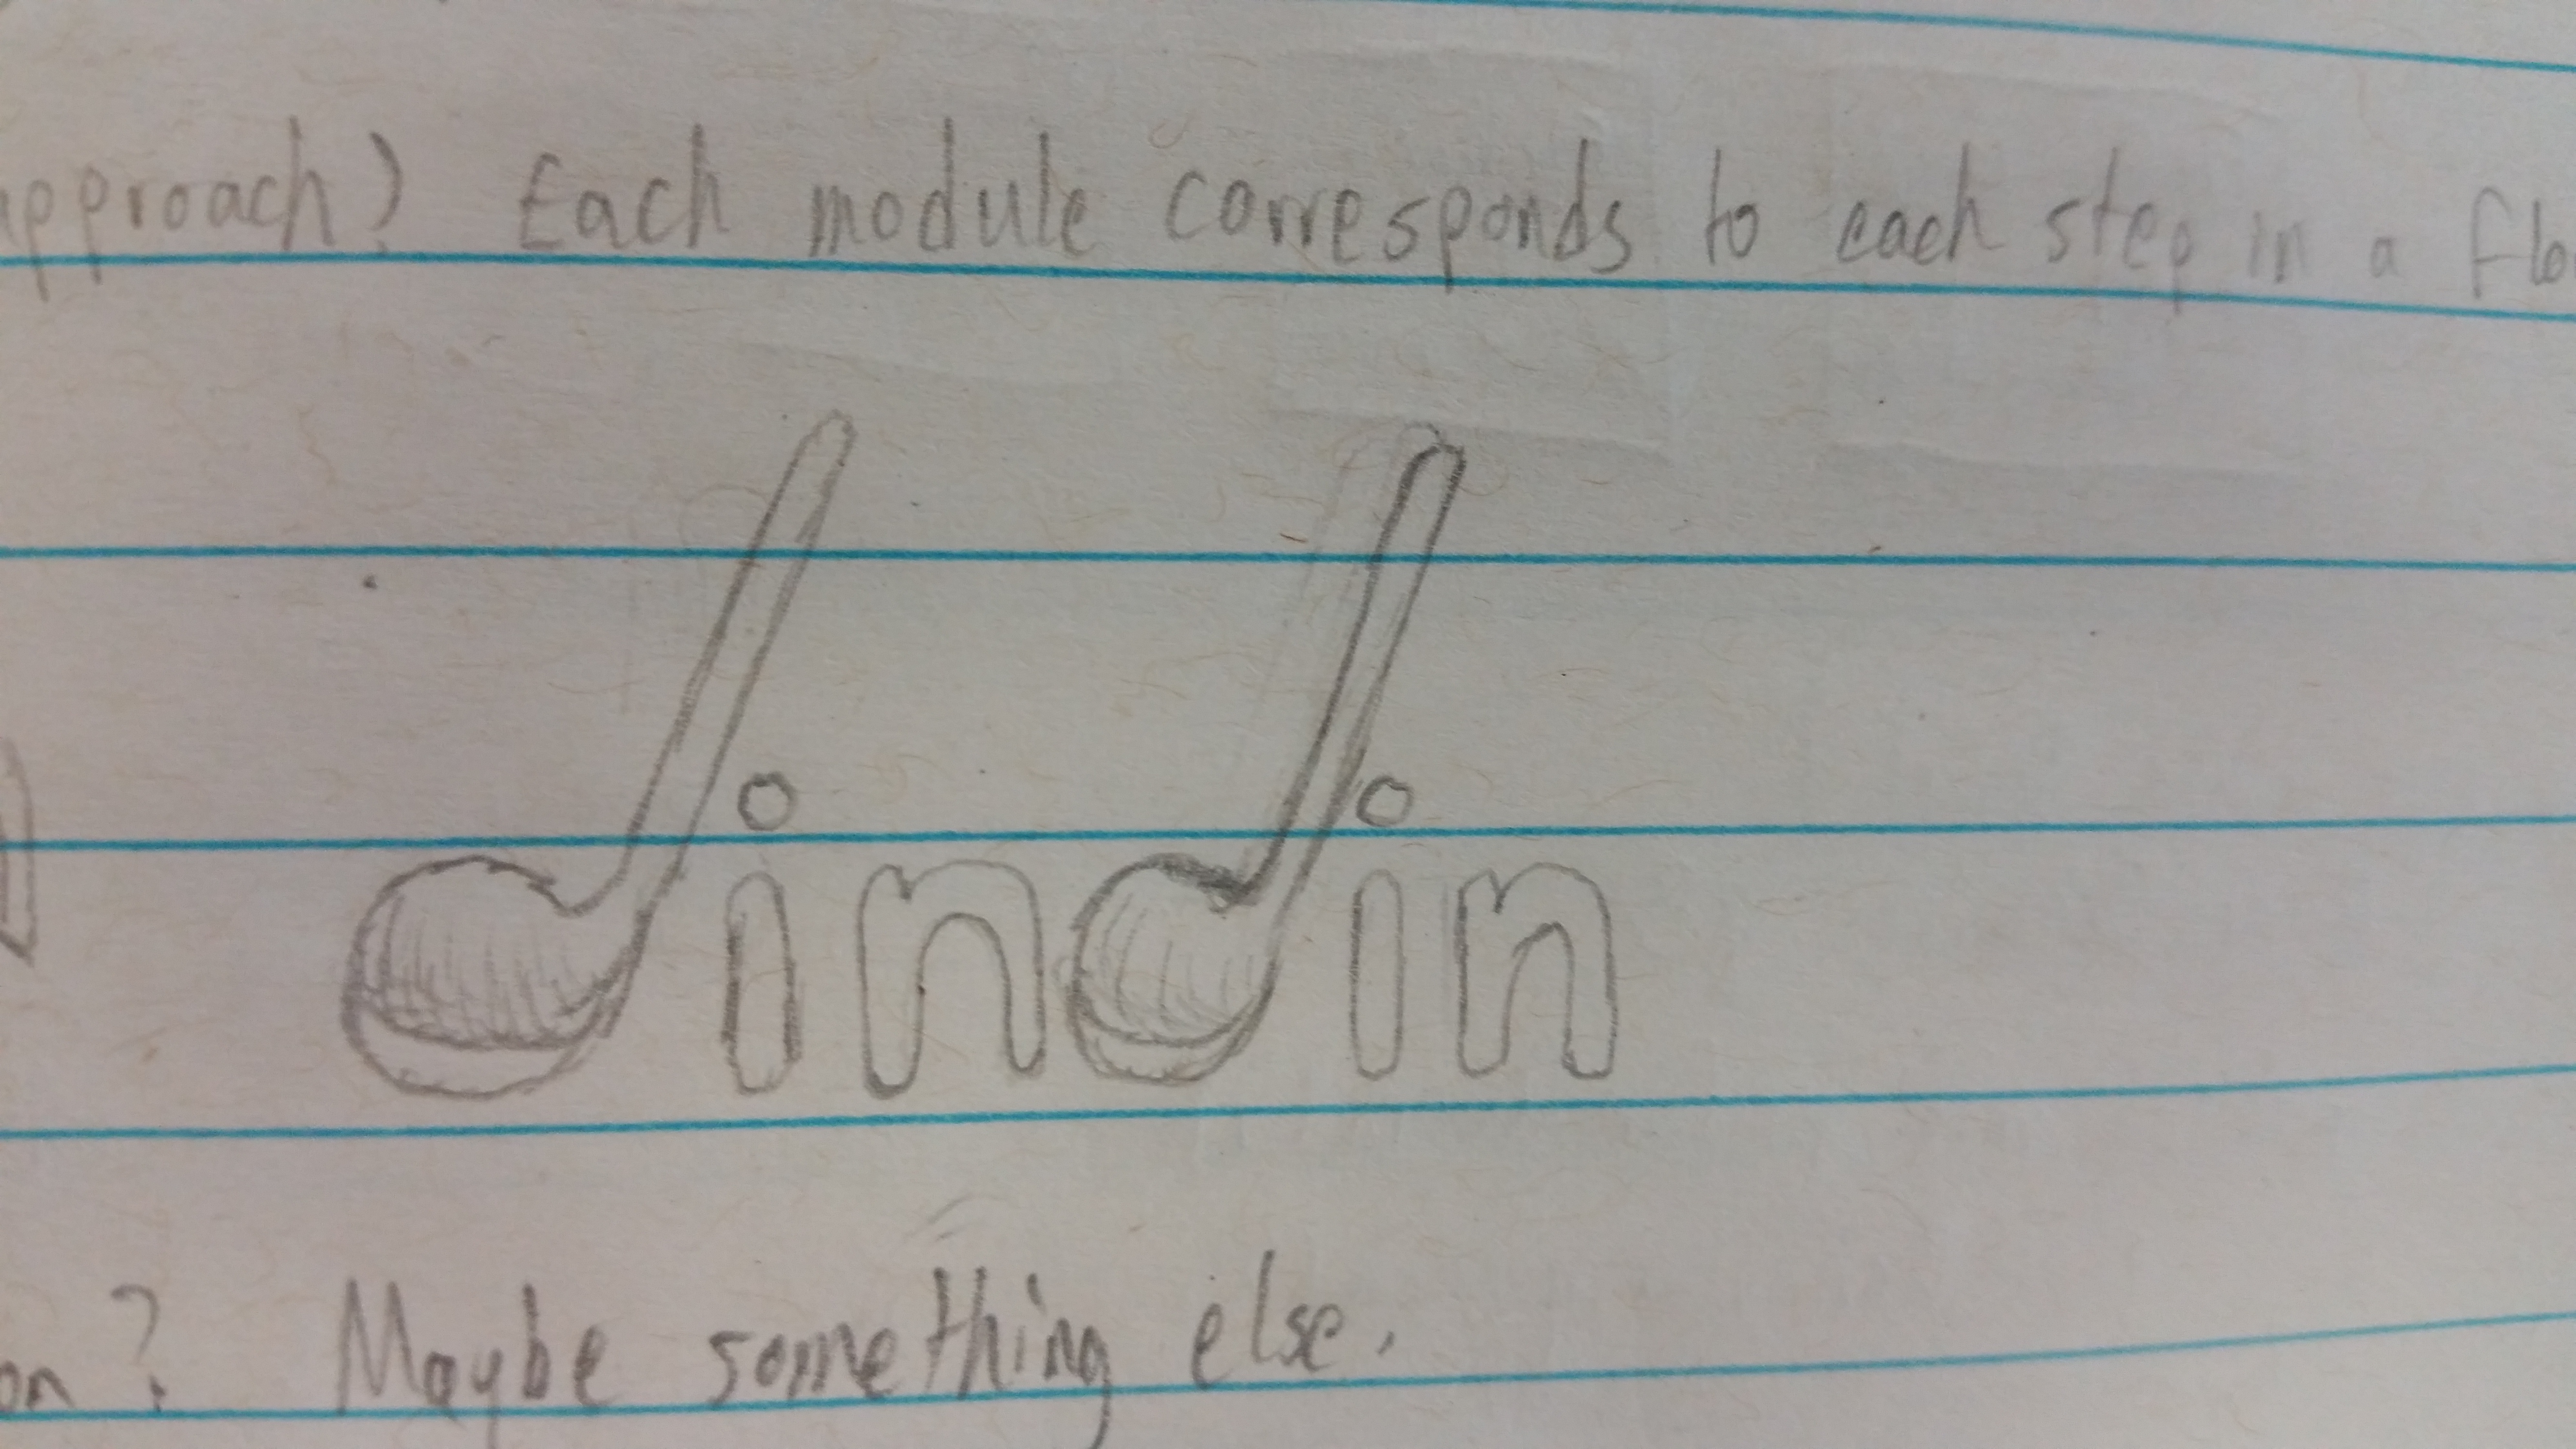 approach) Each module corresponds to each step in a flo
dindin
on? Maybe something else.